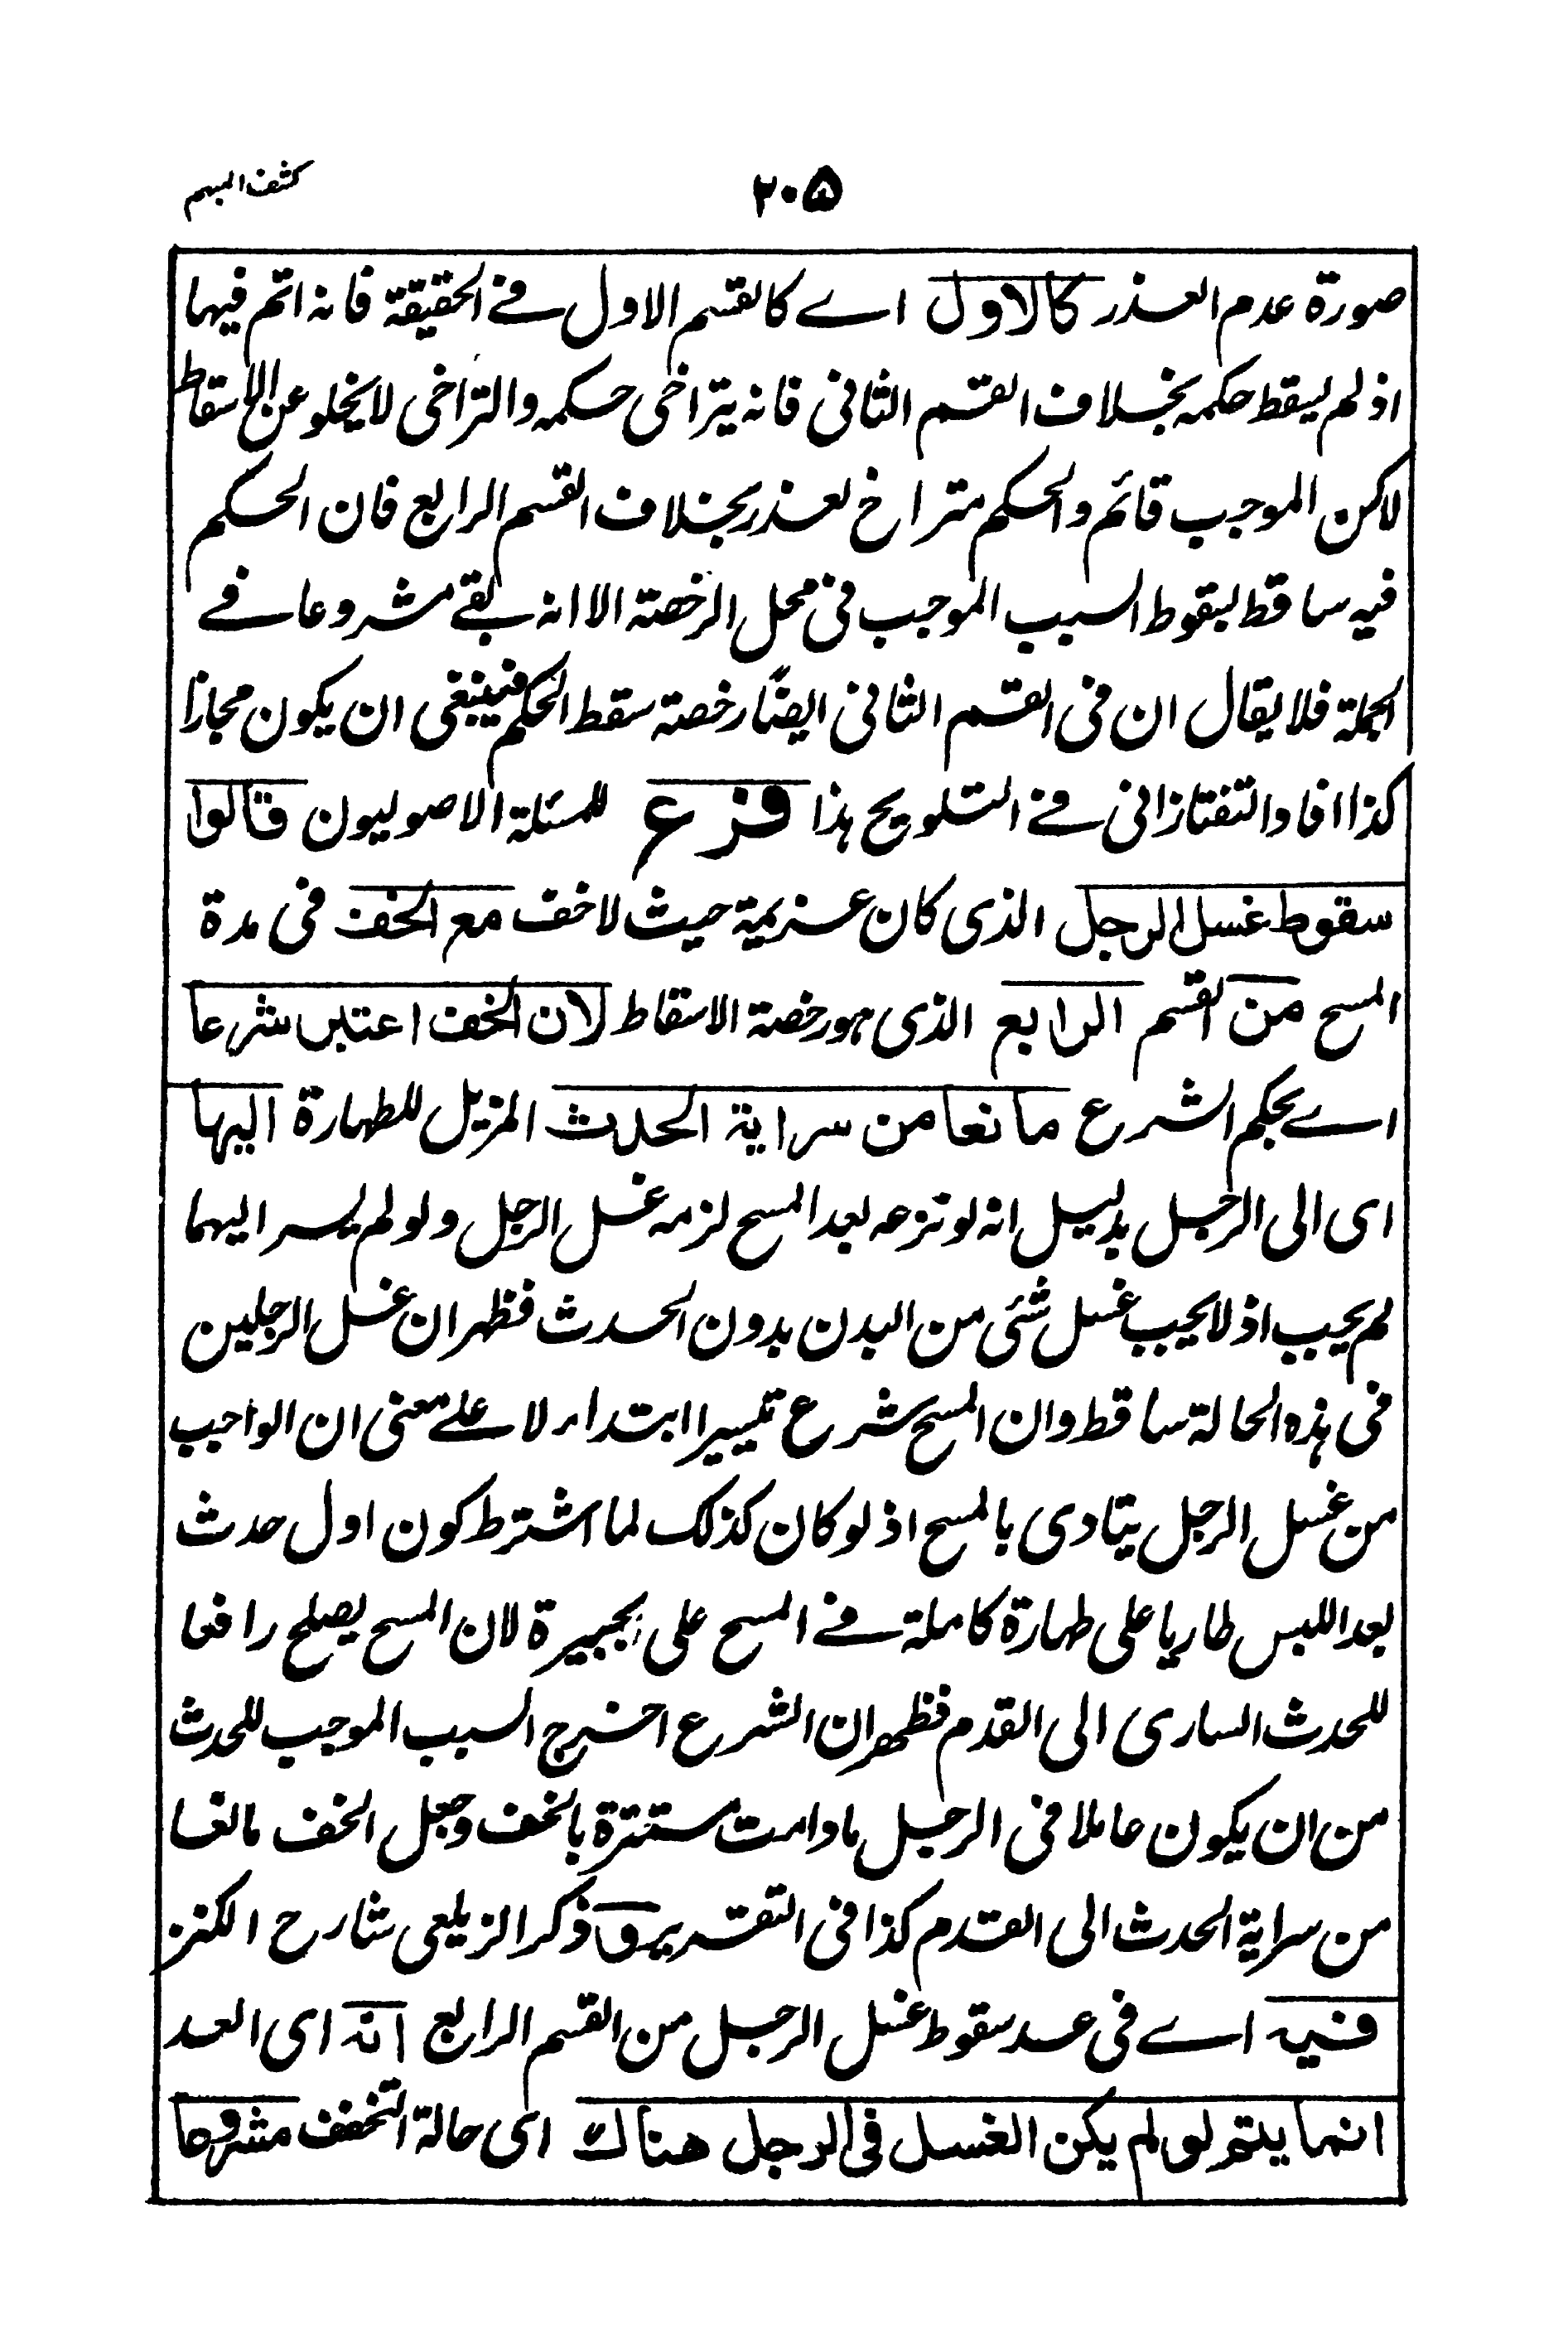 كشف المبهم
۲۰۵
صورة عدم العذر كالاول اے كالقسم الاول فے الحقيقة فانه اتم فيها
اذ لم يسقط حكمه بخلاف القسم الثانى فانه يتراخى حكمه والتراخى لا يخلو عن الاسقاط
لاكن الموجب قائم والحكم متراخ لعذر بخلاف القسم الرابع فان الحكم
فيه ساقط بسقوط السبب الموجب فى محل الرخصة الا انه بقے مشروعا فے
الجملة فلا يقال ان فى القسم الثانى ايضًا رخصة سقط الحكم فينبغى ان يكون مجازا
كذا افاد التفتازانى فے التلويح هذا فرع للمسئلة الاصوليون قالوا
سقوط غسل الرجل الذى كان عزيمة حيث لا خف مع الخف فى مدة
المسح من القسم الرابع الذى هو رخصة الاسقاط لان الخف اعتبر شرعا
اے بحكم الشرع مانعا من سراية الحدث المزيل للطهارة اليها
اى الى الرجل بدليل انه لو نزعه بعد المسح لزمه غسل الرجل ولو لم يسر اليهما
لم يجب اذ لا يجب غسل شئى من البدن بدون الحدث فظهر ان غسل الرجلين
فى هذه الحالة ساقط وان المسح شرع تيسيرا ابتداء لا علے معنى ان الواجب
من غسل الرجل يتادى بالمسح اذ لو كان كذلك لما اشترط كون اول حدث
بعد اللبس طاريا على طهارة كاملة فے المسح على الجبيرة لان المسح يصلح رافعا
للحدث السارى الى القدم فظهر ان الشرع اخرج السبب الموجب للحدث
من ان يكون عاملا فى الرجل مادامت مستترة بالخف وجعل الخف مانعا
من سراية الحدث الى القدم كذا فى التقرير و ذكر الزيلعى شارح الكنز
فيه اے فى عد سقوط غسل الرجل من القسم الرابع انه اى العد
انما يتم لو لم يكن الغسل فى الرجل هناك اى حالة التخفف مشروعا